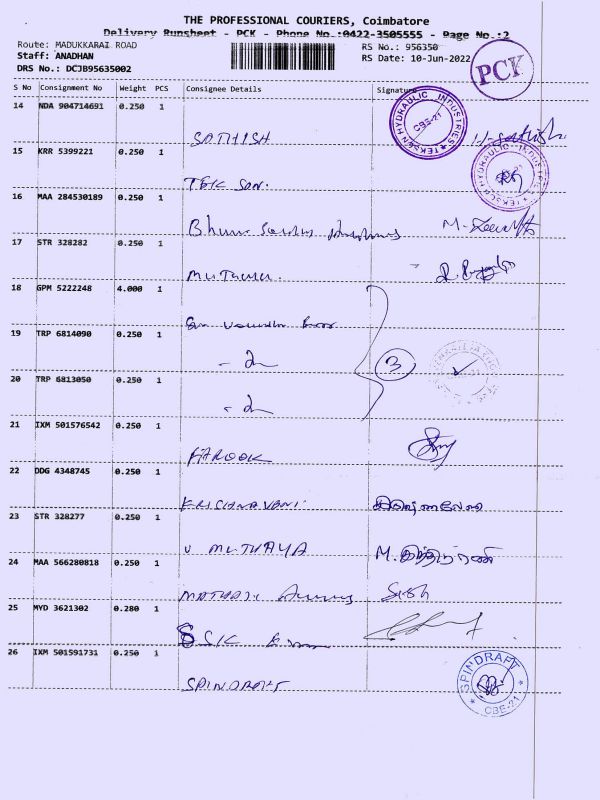 THE PROFESSIONAL COURIERS, Coimbatore
Delivery Runsheet - PCK - Phone No.:0422-3505555 - Page No.:2
Route: MADUKKARAI ROAD RS No.: 956350
Staff: ANADHAN RS Date: 10-Jun-2022
DRS No.: DCJB95635002
PCK
S No Consignment No Weight PCS Consignee Details Signature
14 NDA 904714691 0.250 1
SATHISH
TEKSEN HYDRAULIC INDUSTRIES CBE-21
15 KRR 5399221 0.250 1
TEKSON.
TEKSEN HYDRAULIC INDUSTRIES
16 MAA 284530189 0.250 1
17 STR 328282 0.250 1
18 GPM 5222248 4.000 1
19 TRP 6814090 0.250 1
3
20 TRP 6813050 0.250 1
21 IXM 501576542 0.250 1
FAROOK
22 DDG 4348745 0.250 1
KRISHNAVANI
23 STR 328277 0.250 1
V MUTHAYA
24 MAA 566280818 0.250 1
25 MYD 3621302 0.280 1
SSK
26 IXM 501591731 0.250 1
SPINDRAFT
SPINDRAFT CBE-21